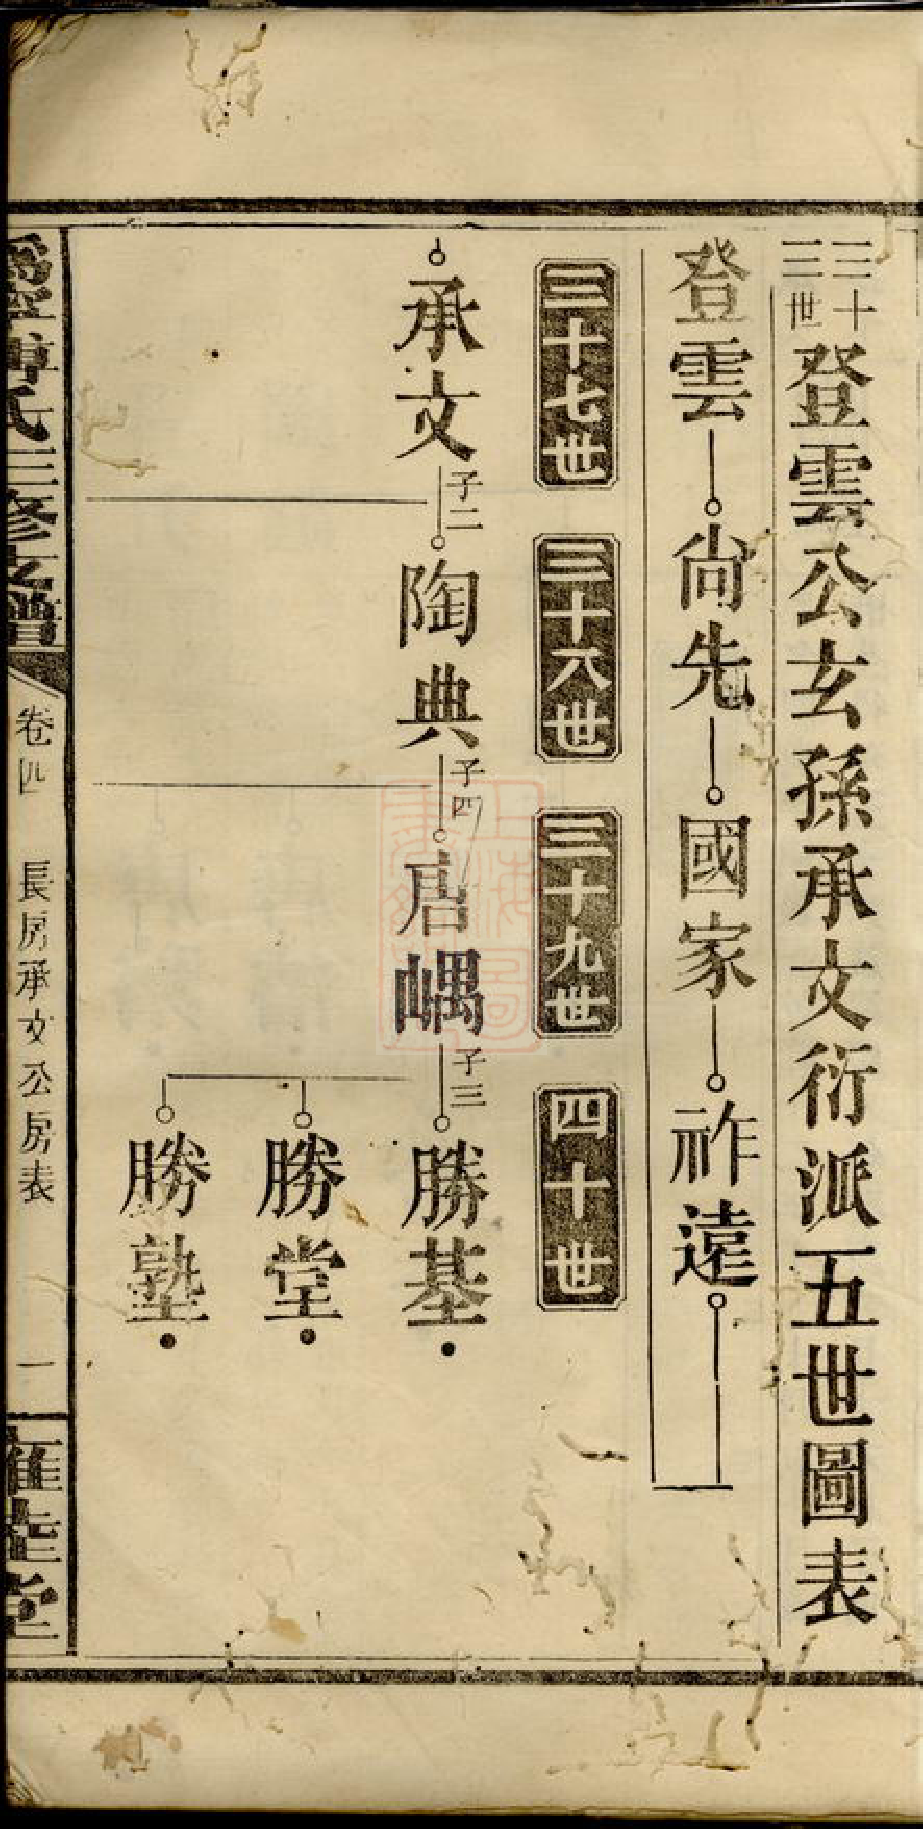 三十三世登雲公玄孫承文衍派五世圖表
登雲 尚先 國家 祚遠
三十七世 三十六世 三十九世 四十世
承文 子二 陶典 子四 唐嵎 子三 勝基
勝堂
勝塾
傅氏三修支譜 卷四 長房承文公房表 一 堂